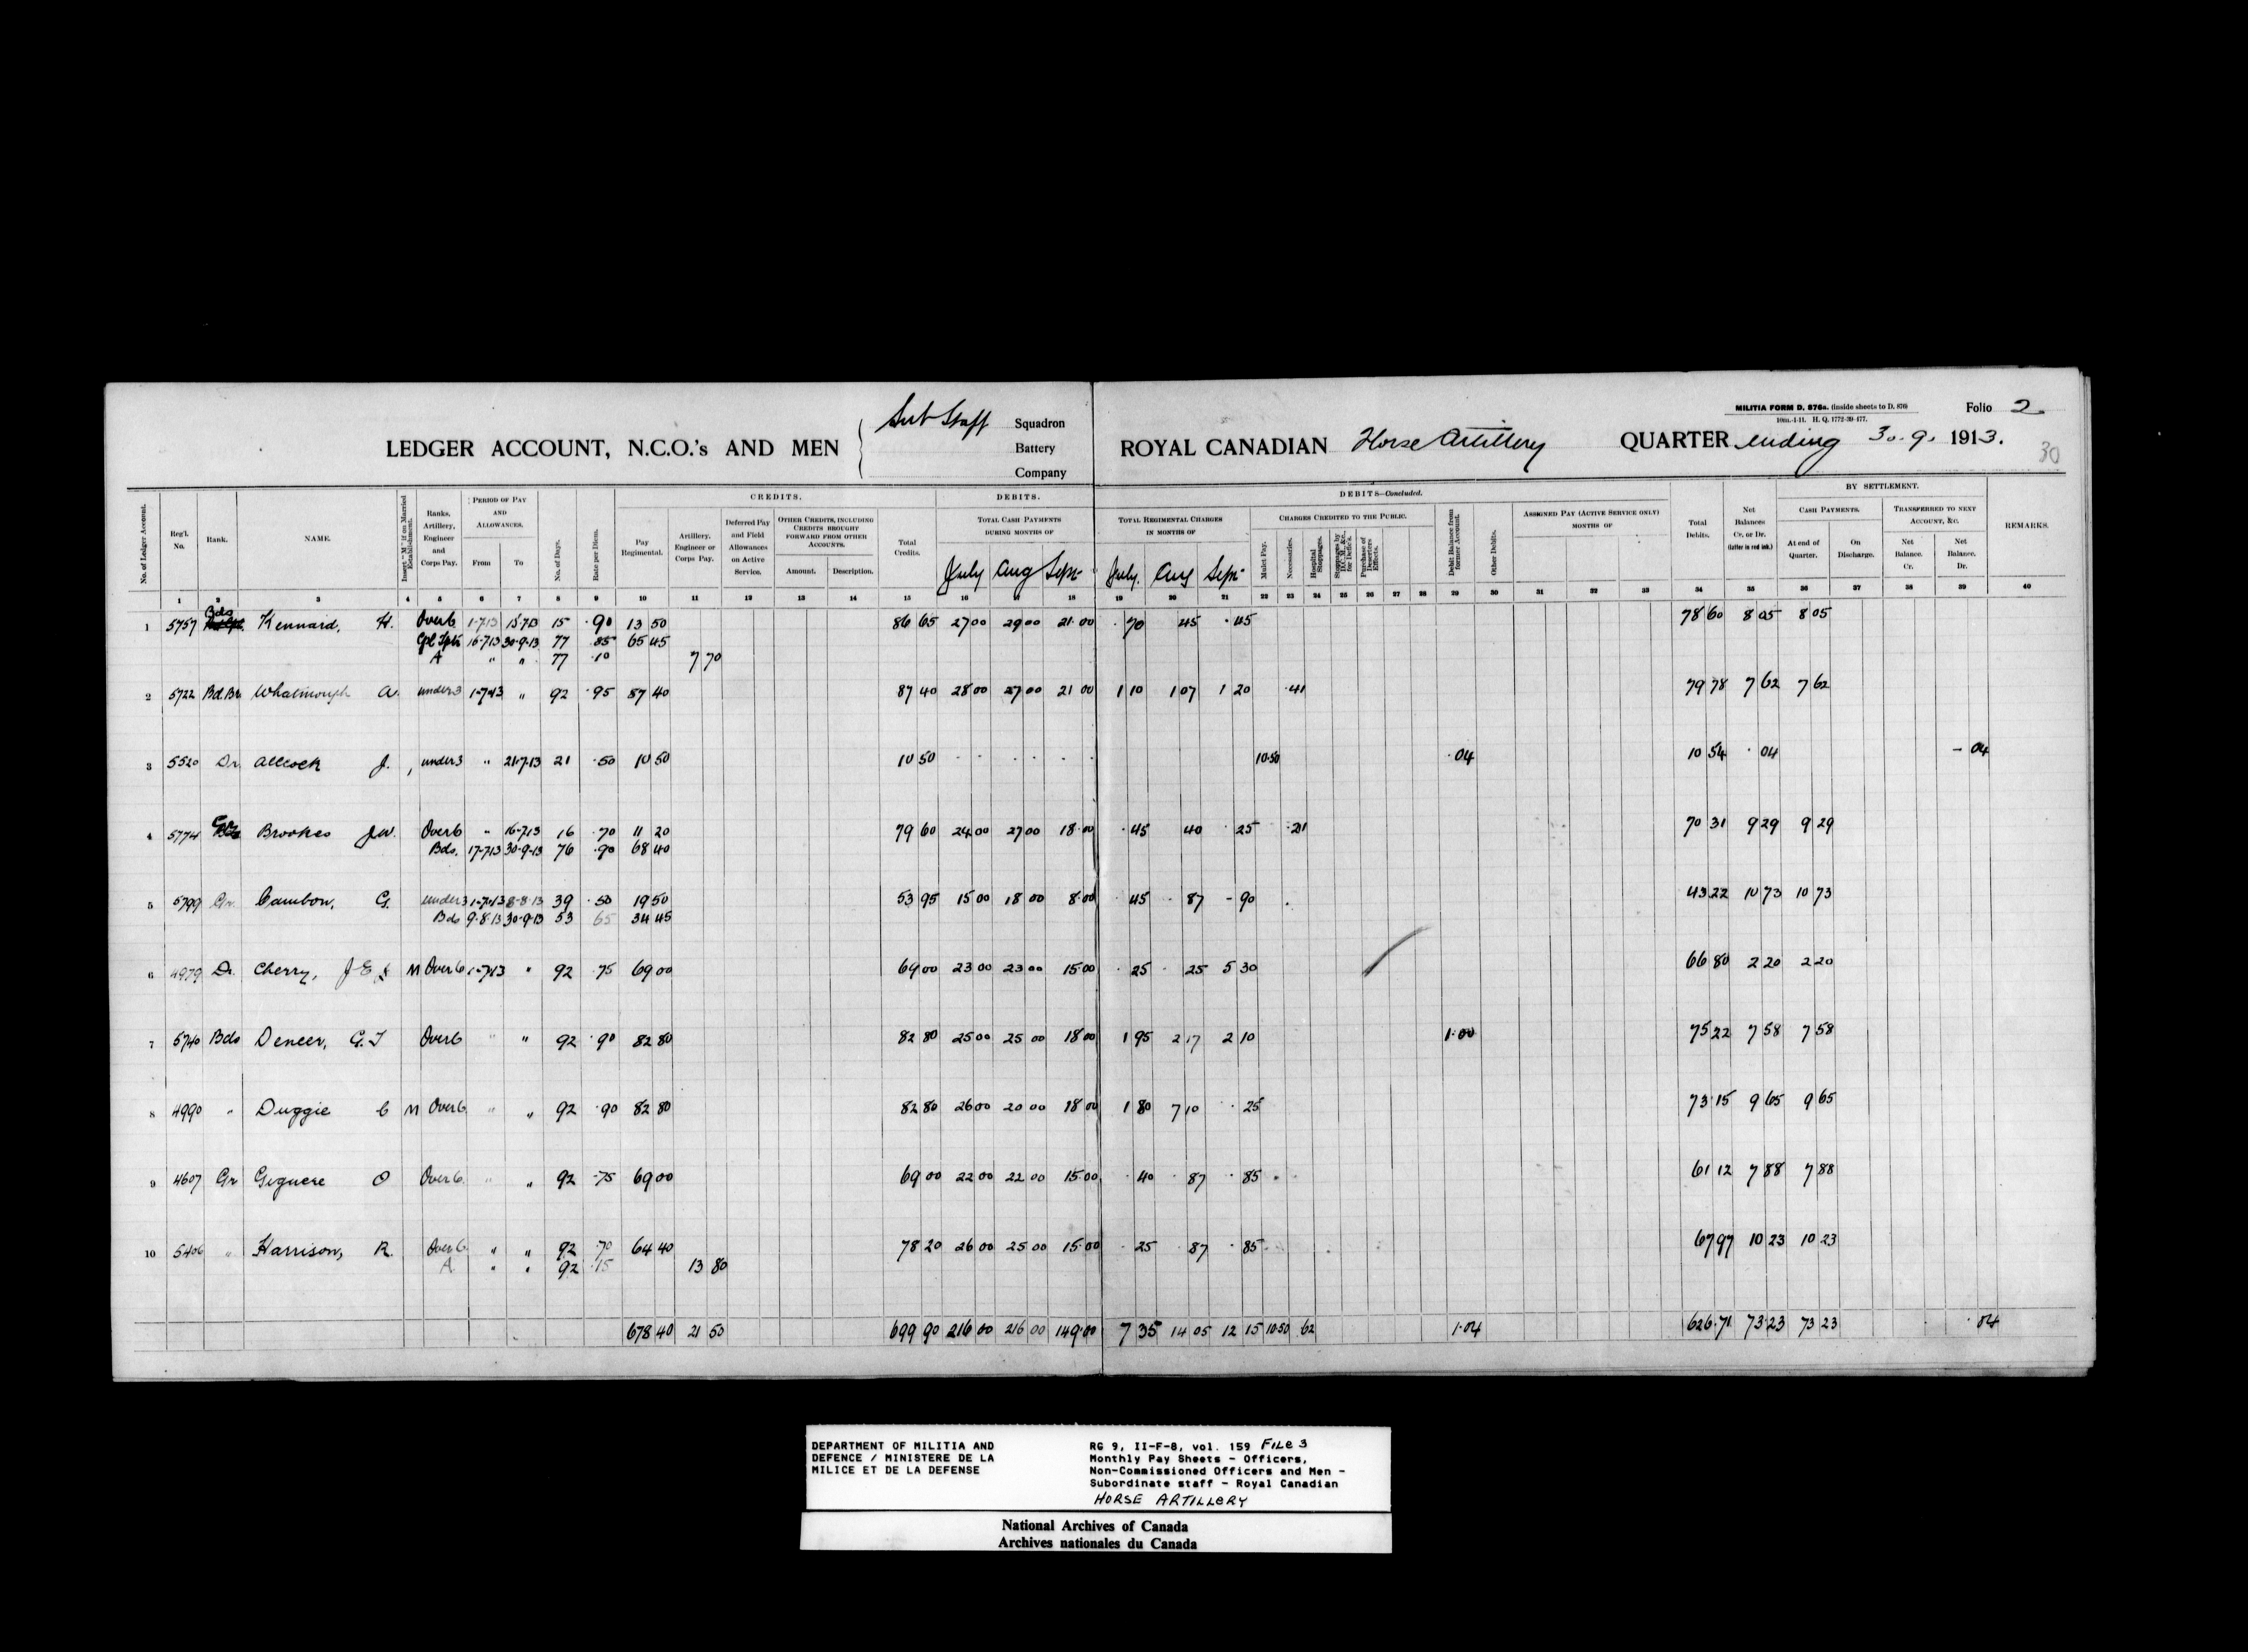 MILITIA FORM D. 876a. (inside sheets to D. 876)
10m.-1-11. H. Q. 1772-39-477.
Folio 2
30
LEDGER ACCOUNT, N.C.O.'s AND MEN { Sub Staff Squadron
Battery
Company
ROYAL CANADIAN Horse Artillery QUARTER ending 30.9. 1913.
No. of Ledger Account.
Reg'l. No.
Rank.
NAME.
Insert "M" if on Married Establishment.
Ranks, Artillery, Engineer and Corps Pay.
PERIOD OF PAY AND ALLOWANCES.
From
To
No. of Days.
Rate per Diem.
CREDITS.
Pay Regimental.
Artillery, Engineer or Corps Pay.
Deferred Pay and Field Allowances on Active Service.
OTHER CREDITS, INCLUDING CREDITS BROUGHT FORWARD FROM OTHER ACCOUNTS.
Amount.
Description.
Total Credits.
DEBITS.
TOTAL CASH PAYMENTS DURING MONTHS OF
July Aug Sept
DEBITS—Concluded.
TOTAL REGIMENTAL CHARGES IN MONTHS OF
July. Aug Sept
CHARGES CREDITED TO THE PUBLIC.
Mulct Pay.
Necessaries.
Hospital Stoppages.
Stoppages by D.C.M., &c. for Defic's.
Purchase of Deserters Effects.
Debit Balance from former Account.
Other Debits.
ASSIGNED PAY (ACTIVE SERVICE ONLY) MONTHS OF
Total Debits.
Net Balances Cr. or Dr. (latter in red ink.)
BY SETTLEMENT.
CASH PAYMENTS.
At end of Quarter.
On Discharge.
TRANSFERRED TO NEXT ACCOUNT, &C.
Net Balance. Cr.
Net Balance. Dr.
REMARKS.
1 2 3 4 5 6 7 8 9 10 11 12 13 14 15 16 17 18 19 20 21 22 23 24 25 26 27 28 29 30 31 32 33 34 35 36 37 38 39 40
1 5757 Bds Kennard, H. Over 6 1-7-13 15-7-13 15 .90 13 50 86 65 27 00 29 00 21.00 .70 45 .45 78 60 8 05 8 05
16-7-13 30-9-13 77 .85 65 45
A " " 77 .10 7 70
2 5722 Bd.Br Whatmough A. under 3 1-7-13 " 92 .95 87 40 87 40 28 00 27 00 21 00 1 10 1 07 1 20 .41 79 78 7 62 7 62
3 5520 Dr. Allcock J. under 3 " 21-7-13 21 .50 10 50 10 50 10.50 .04 10 54 . 04 - 04
4 5774 Brookes J.W. Over 6 " 16-7-13 16 .70 11 20 79 60 24 00 27 00 18.00 .45 40 . 25 .21 70 31 9 29 9 29
Bds. 17-7-13 30-9-13 76 .90 68 40
5 5799 Gr. Cambon, G. under 3 1-7-13 8-8-13 39 .50 19 50 53 95 15 00 18 00 8.00 . 45 87 - 90 43 22 10 73 10 73
Bds 9-8-13 30-9-13 53 65 34 45
6 4979 Dr. Cherry, J.E. M Over 6 1-7-13 " 92 .75 69 00 69 00 23 00 23 00 15 00 . 25 . 25 5 30 66 80 2 20 2 20
7 5740 Bds Deneer, G.T Over 6 " " 92 .90 82 80 82 80 25 00 25 00 18 00 1 95 2 17 2 10 1.00 75 22 7 58 7 58
8 4990 " Duggie C M Over 6 " " 92 .90 82 80 82 80 26 00 20 00 18 00 1 80 7 10 . 25 73.15 9 65 9 65
9 4607 Gr Giguere O Over 6 " " 92 .75 69 00 69 00 22 00 22 00 15.00 . 40 . 87 . 85 61 12 7 88 7 88
10 5406 " Harrison, R. Over 6 " " 92 70 64 40 78 20 26 00 25 00 15.00 . 25 87 . 85 67 97 10 23 10 23
A " " 92 .15 13 80
678 40 21 50 699 90 216 00 216 00 149.00 7 35 14 05 12 15 10.50 62 1.04 626.71 73.23 73 23 . 04
DEPARTMENT OF MILITIA AND
DEFENCE / MINISTERE DE LA
MILICE ET DE LA DEFENSE
RG 9, II-F-8, vol. 159 FILE 3
Monthly Pay Sheets - Officers,
Non-Commissioned Officers and Men -
Subordinate staff - Royal Canadian
HORSE ARTILLERY
National Archives of Canada
Archives nationales du Canada